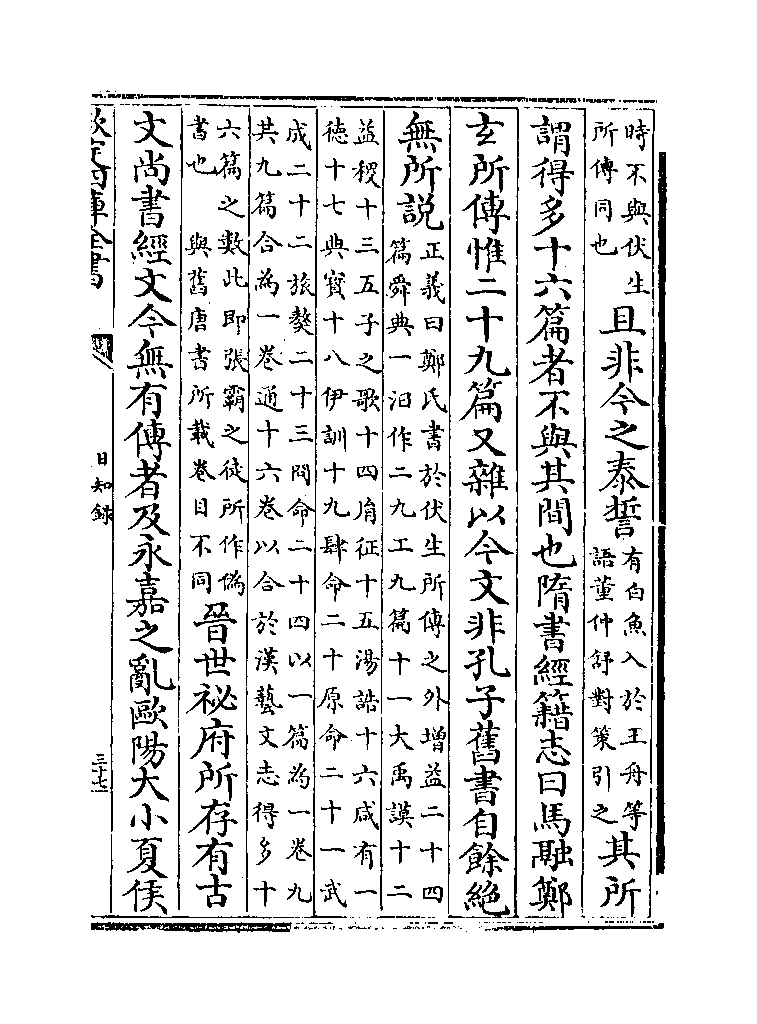 時不與伏生
所傳同也
且非今之泰誓
有白魚入於王舟等
語董仲舒對策引之
其所
謂得多十六篇者不與其間也隋書經籍志曰馬融鄭
玄所傳惟二十九篇又雜以今文非孔子舊書自餘絶
無所説
正義曰鄭氏書於伏生所傳之外增益二十四
篇舜典一汩作二九工九篇十一大禹謨十二
益稷十三五子之歌十四胤征十五湯誥十六咸有一
德十七典寳十八伊訓十九肆命二十原命二十一武
成二十二旅獒二十三冏命二十四以一篇為一卷九
共九篇合為一卷通十六卷以合於漢藝文志得多十
六篇之數此即張霸之徒所作偽
書也 與舊唐書所載卷目不同
晉世祕府所存有古
文尚書經文今無有傳者及永嘉之亂歐陽大小夏侯
欽定四庫全書
日知錄
三十七